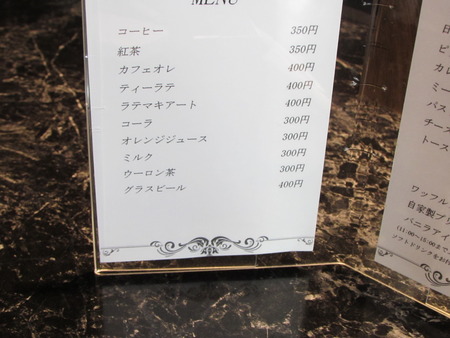 MENU
コーヒー 350円
紅茶 350円
カフェオレ 400円
ティーラテ 400円
ラテマキアート 400円
コーラ 300円
オレンジジュース 300円
ミルク 300円
ウーロン茶 300円
グラスビール 400円
ピ
カレ
ミー
パス
チーズ
トース
ワッフル
自家製プリ
バニラアイ
(11:00~15:00まで
ソフトドリンクをお